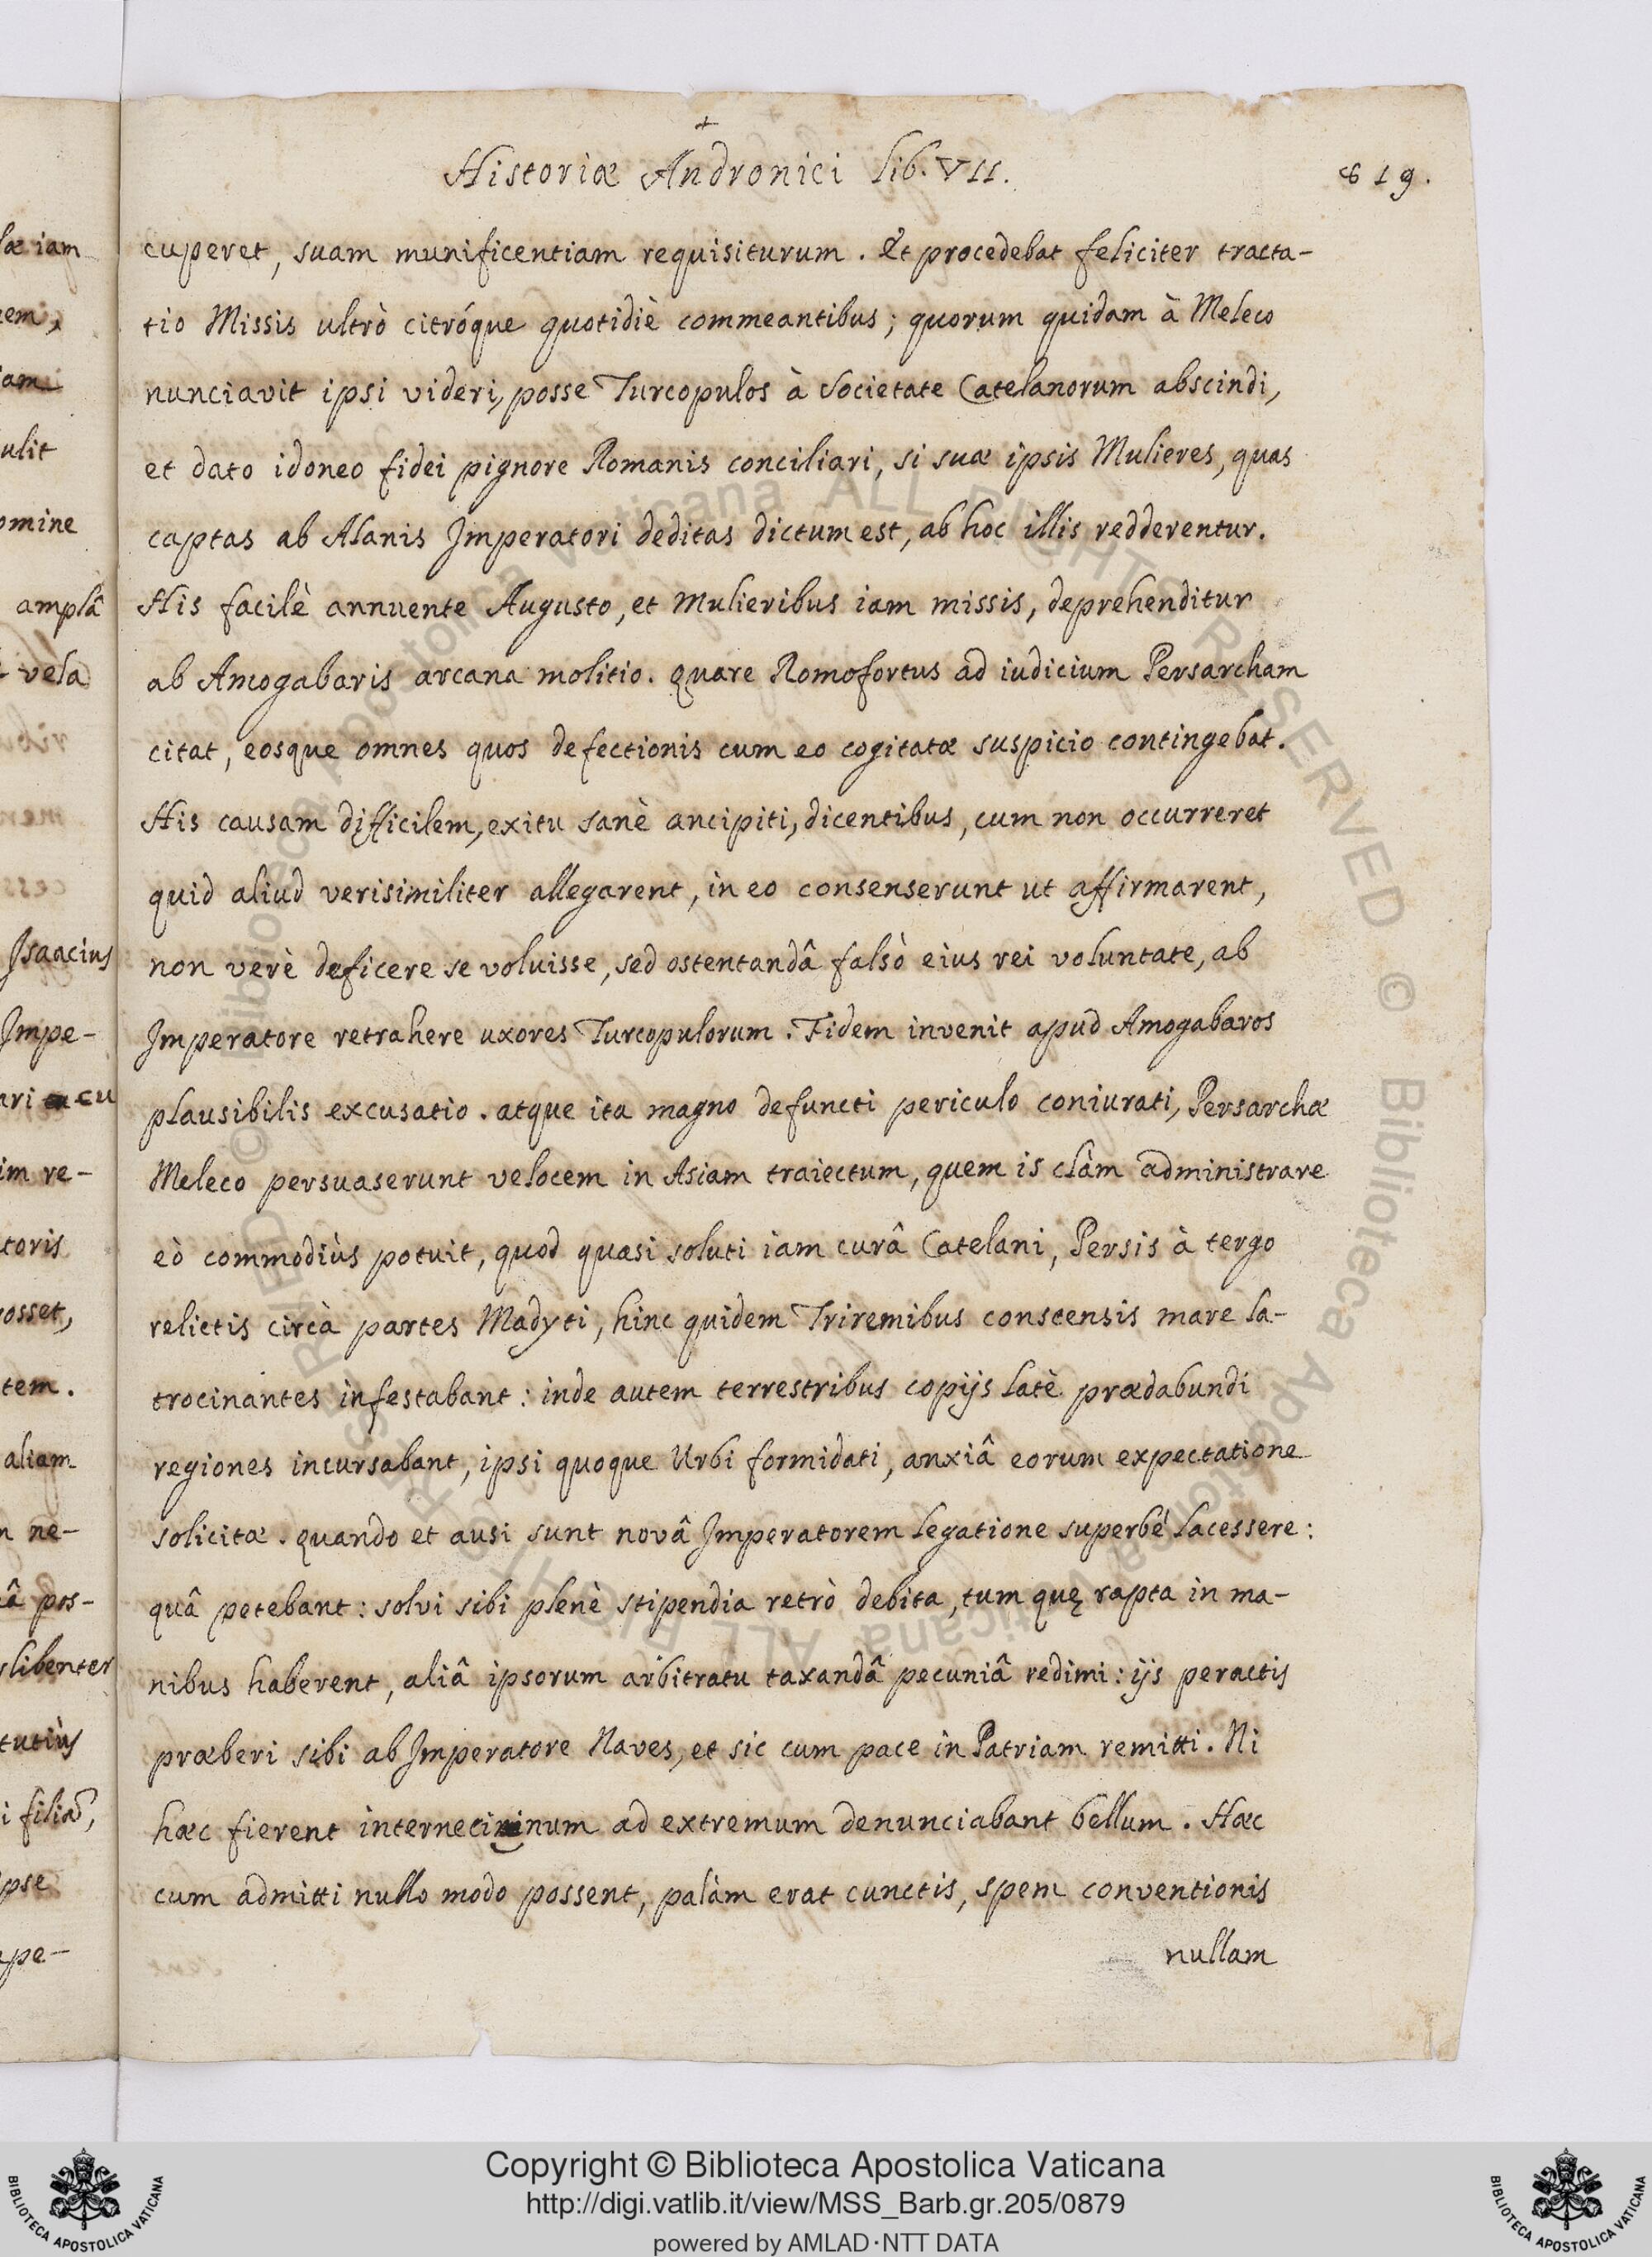 +
Historiæ Andronici lib. VII.
819.
cuperet, suam munificentiam requisiturum. Et procedebat feliciter tracta-
tio Missis ultrò citróque quotidiè commeantibus; quorum quidam à Meleco
nunciavit ipsi videri, posse Turcopulos à Societate Catelanorum abscindi,
et dato idoneo fidei pignore Romanis conciliari, si suæ ipsis Mulieres, quas
captas ab Alanis Imperatori deditas dictum est, ab hoc illis redderentur.
His facilè annuente Augusto, et Mulieribus iam missis, deprehenditur
ab Amogabaris arcana molitio. quare Romofortus ad iudicium Persarcham
citat, eosque omnes quos defectionis cum eo cogitatæ suspicio contingebat.
His causam difficilem, exitu sanè ancipiti, dicentibus, cum non occurreret
quid aliud verisimiliter allegarent, in eo consenserunt ut affirmarent,
non verè deficere se voluisse, sed ostentandâ falsò eius rei voluntate, ab
Imperatore retrahere uxores Turcopulorum. Fidem invenit apud Amogabaros
plausibilis excusatio. atque ita magno defuncti periculo coniurati, Persarchæ
Meleco persuaserunt velocem in Asiam traiectum, quem is clàm administrare
eò commodiùs potuit, quod quasi soluti iam curâ Catelani, Persis à tergo
relictis circà partes Madyti, hinc quidem Triremibus conscensis mare la-
trocinantes infestabant: inde autem terrestribus copijs latè prædabundi
regiones incursabant, ipsi quoque Urbi formidati, anxiâ eorum expectatione
solicitæ. quando et ausi sunt novâ Imperatorem legatione superbé lacessere:
quâ petebant: solvi sibi plenè stipendia retrò debita, tum quę rapta in ma-
nibus haberent, aliâ ipsorum arbitratu taxandâ pecuniâ redimi: ijs peractis
præberi sibi ab Imperatore Naves, et sic cum pace in Patriam remitti. Ni
hæc fierent internecinum ad extremum denunciabant bellum. Hæc
cum admitti nullo modo possent, palàm erat cunctis, spem conventionis
nullam
læ iam
ulit
omine
amplâ
vela
Isaacius
Impe-
im re-
toris
tem.
aliam
ne-
pos-
libenter
tutiùs
ipse
Copyright © Biblioteca Apostolica Vaticana
http://digi.vatlib.it/view/MSS_Barb.gr.205/0879
powered by AMLAD·NTT DATA
BIBLIOTECA APOSTOLICA VATICANA
BIBLIOTECA APOSTOLICA VATICANA